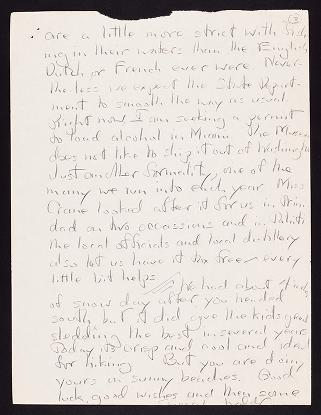 3
are a little more strict with fish-
ing in their waters than the English
Dutch or French ever were. Never-
the less we expect the State Depart-
ment to smooth the way as usual.
Right now I am seeking a permit
to load alcohol in Miami. The Museum
does not like to ship it out of Washington
Just another formality, one of the
many we run into each year. Miss
Crane looked after it for us in Trini-
dad on two occassions and in
the local officials and local distillery
also let us have it tax free – every
little bit helps.
We had about
of snow day after you headed
south but it did give the kids great
sledding the best in several years
Today its crisp and cool and ideal
for hiking. But you are doing
yours on sunny beaches. Good
luck, good wishes and then some